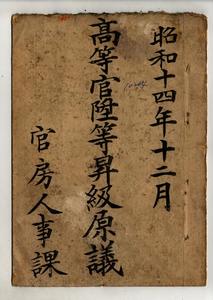 昭和十四年十二月
高等官陞等昇級原議
官房人事課